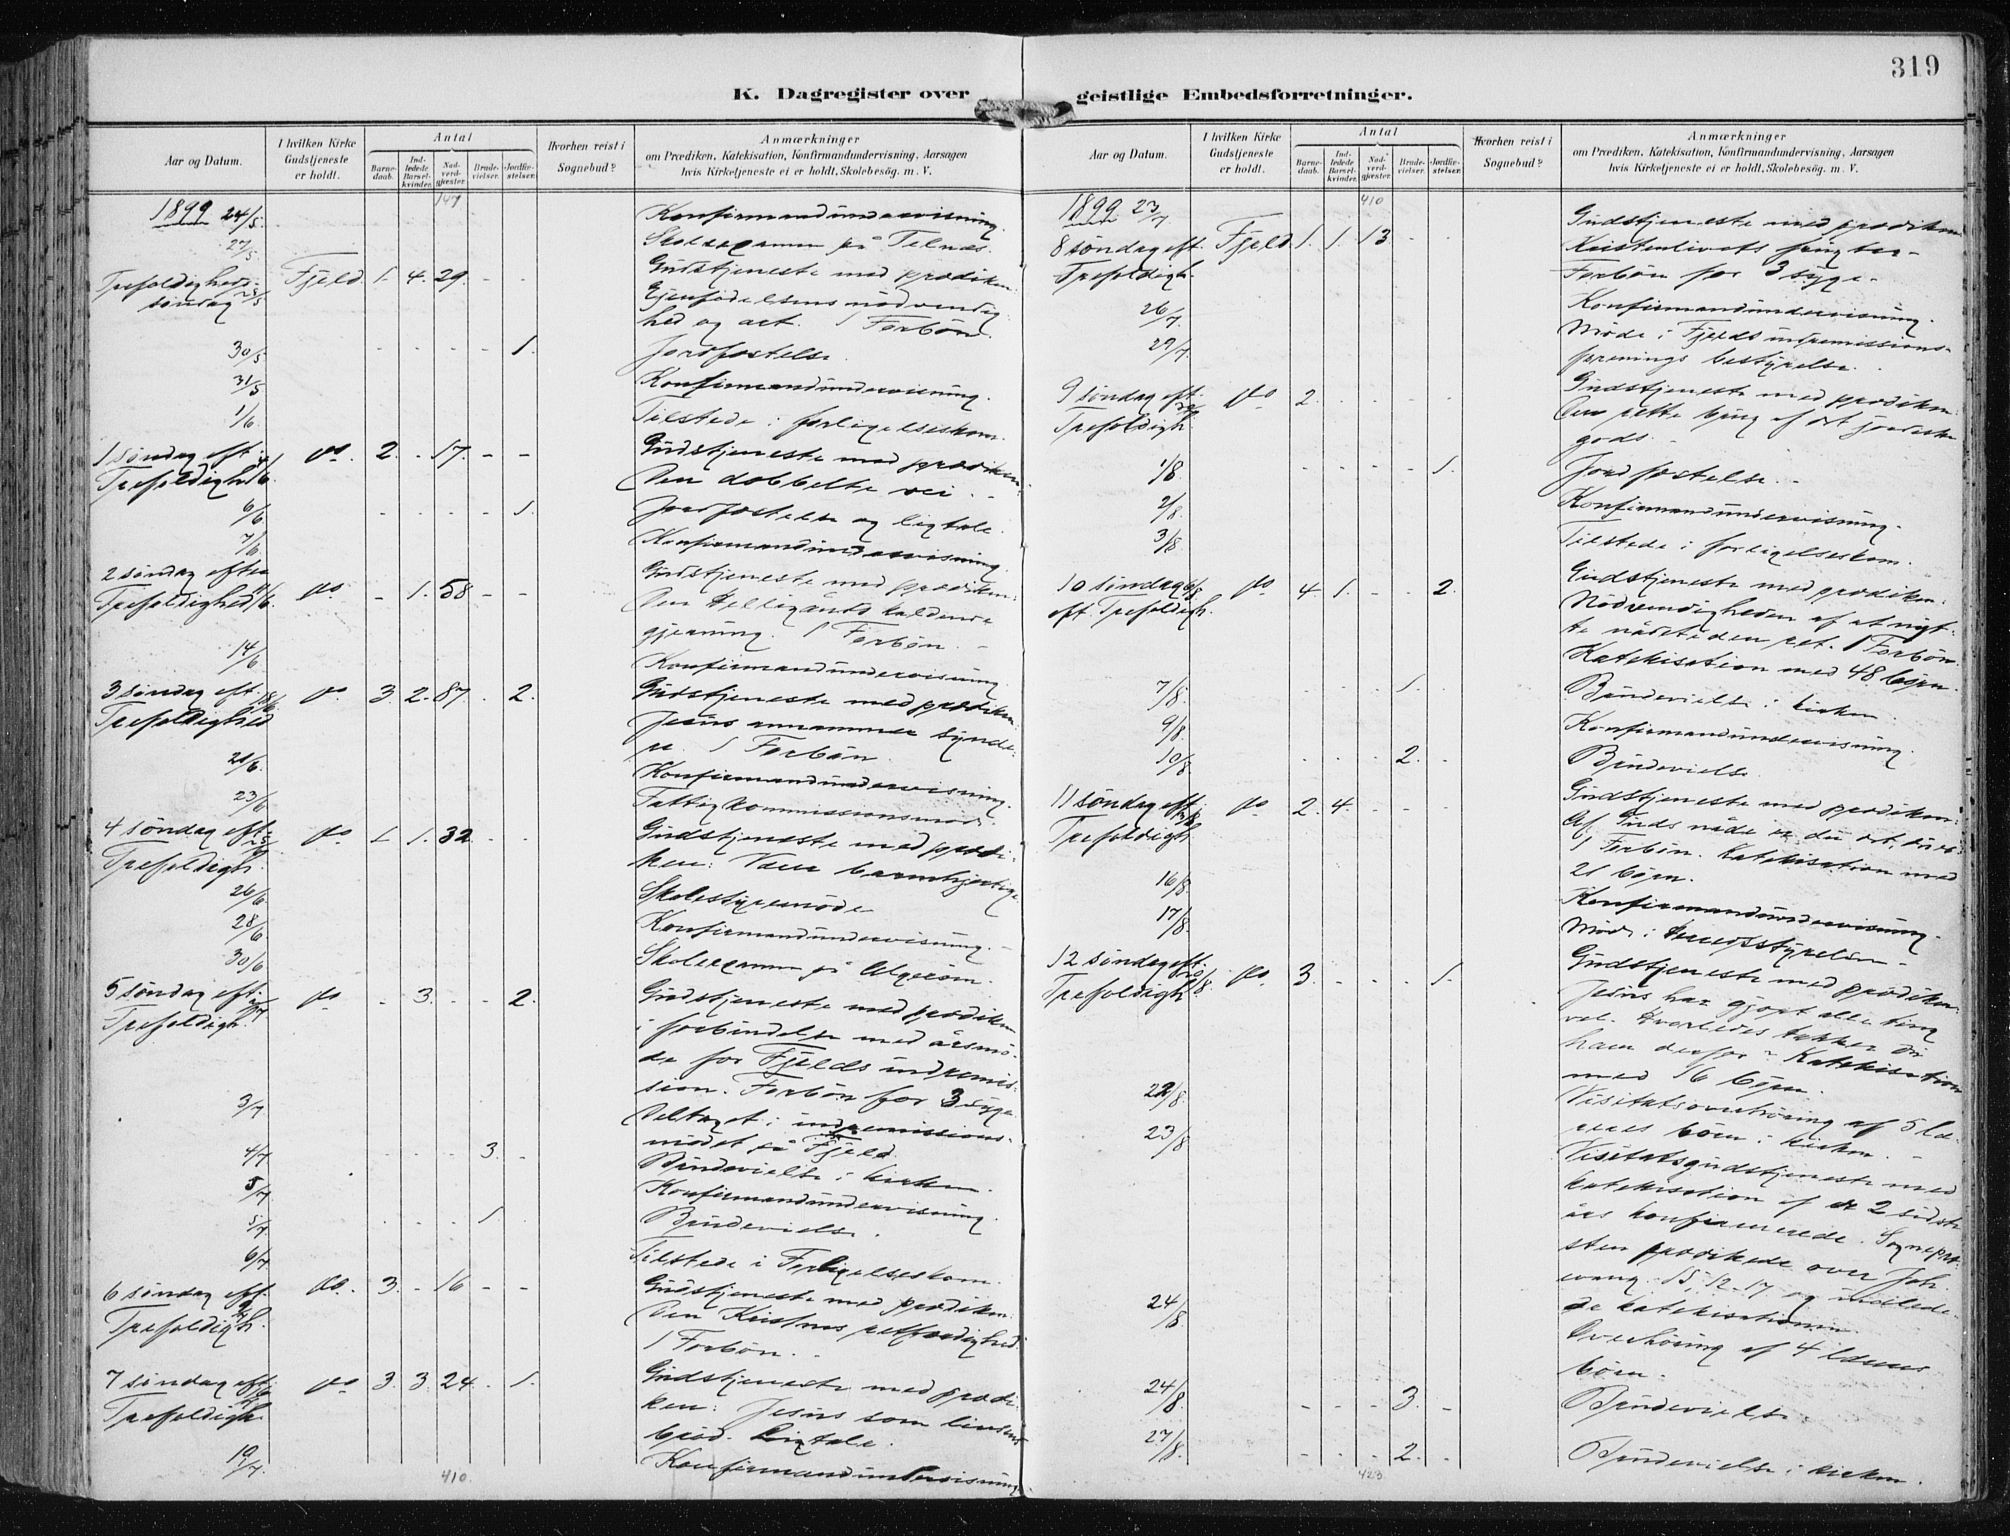 319
K. Dagregister over geistlige Embedsforretninger.
Aar og Datum.
I hvilken Kirke Gudstjeneste er holdt.
Antal
Barnedaab.
Indledede Barselkvinder.
Nadverdgjester.
Brudevielser.
Jordfæstelser.
Hvorhen reist i Sognebud?
Anmærkninger
om Prædiken, Katekisation, Konfirmandundervisning, Aarsagen
hvis Kirketjeneste ei er holdt, Skolebesøg, m. V.
147
1899 24/5 Konfirmandundervisning.
27/5 Skoleexamen på Telnæs.
Trefoldigheds- Fjeld. 1. 4. 29. - - Gudstjeneste med prædiken:
søndag 28/5 Gjenfødelsens nødvendig
hed og art. 1 Forbøn.
30/5 - - - - 1. Jordfæstelse.
31/5 Konfirmandundervisning.
1/6 Tilstede i forligelseskom.
1 søndag eft. do. 2. - 17. - - Gudstjeneste med prædiken:
Trefoldigh. 4/6. Den dobbelte vei.
6/6. - - - - 1. Jordfæstelse og ligtale.
7/6. Konfirmandundervisning
2 søndag efter do - 1. 58 - - Gudstjeneste med prædiken:
Trefoldighed 11/6. Den Helligånds kaldende
gjerning. 1 Forbøn.
14/6 Konfirmandundervisning
3 søndag eft. 18/6 do. 3. 2. 87. - 2. Gudstjeneste med prædiken:
Trefoldighed Jesus annammer synde-
re. 1 Forbøn.
21/6. Konfirmandundervisning.
23/6 Fattigkommissionsmøde.
4 søndag eft. 25/6 do. 1. 1. 32. - - Gudstjeneste med prædi-
Trefoldigh. ken: Vær barmhjertige
26/6 Skolestyremøde
28/6 Konfirmandundervisning.
30/6 Skoleexamen på Algerøen.
5 søndag eft. 2/7 do - 3. - - 2. Gudstjeneste med prædiken
Trefoldigh. i forbindelse med årsmø-
de for Fjelds indremis-
sion. Forbøn for 3 syge.
3/7 Deltaget i indremissions-
mødet på Fjeld.
4/7 - - - 3. - Brudevielse i kirken.
5/7 Konfirmandundervisning.
5/7 - - - 1 - Brudevielse.
6/7 Tilstede i Forligelseskom.
6 søndag eft. do. 3. - 16 - - Gudstjeneste med prædiken:
Trefoldigh. 9/7 Den Kristnes retfærdighed.
1 Forbøn.
7 søndag eft. do. 3. 3. 24. - 1. Gudstjeneste med prædi-
Trefoldigh. 16/7 ken: Jesus som livsens
brød. Ligtale.
19/7. Konfirmandundervisning
410.
Aar og Datum.
I hvilken Kirke Gudstjeneste er holdt.
Antal
Barnedaab.
Indledede Barselkvinder.
Nadverdgjester.
Brudevielser.
Jordfæstelser.
Hvorhen reist i Sognebud?
Anmærkninger
om Prædiken, Katekisation, Konfirmandundervisning, Aarsagen
hvis Kirketjeneste ei er holdt, Skolebesøg, m. V.
410
1899 23/7 Gudstjeneste med prædiken
8 søndag eft. Fjeld. 1. 1. 13 - - Kristenlivets frugter.
Trefoldigh. Forbøn for 3 syge.
26/7. Konfirmandundervisning.
29/7. Møde i Fjelds indremissions-
forenings bestyrelse.
9 søndag eft. 30/7 do 2. - - - - Gudstjeneste med prædiken:
Trefoldigh Den rette brug af det jordiske
gods.
1/8 - - - - 1. Jordfæstelse.
2/8. Konfirmandundervisning.
3/8. Tilstede i forligelseskom.
10 søndag 6/8 do. 4. 1. - - 2. Gudstjeneste med prædiken:
eft. Trefoldigh. Nødvendigheden af at nyt-
te nådetiden ret. 1 Forbøn.
Katekisation med 48 børn.
7/8. - - - 1. - Brudevielse i kirken.
9/8. Konfirmandundervisning.
10/8. - - - 2. - Brudevielse.
11 søndag eft. 13/8 do 2. 4. - - - Gudstjeneste med prædiken:
Trefoldigh Af Guds nåde er du det, du er.
1 Forbøn. Katekisation med
21 børn.
16/8. Konfirmandundervisning.
17/8. Møde i herredsstyrelsen.
12 søndag eft. 20/8. do. 3. - - - 1. Gudstjeneste med prædiken:
Trefoldigh Jesus har gjort alle ting
vel. Hvorledes takker du
ham derfor? Katekisation
med 16 børn.
22/8. Visitatsoverhøring af 5 læ-
reres børn i kirken.
23/8 Visitatsgudstjeneste med
katekisation af de 2 sidste
års konfirmerede. Sognepræ-
sten prædikede over Joh.
evang. 15, 12-17 og indlede-
de katekisationen.
24/8 Overhøring af 4 læreres
børn.
24/8 - - - 3. - Brudevielse.
27/8. - - - 2. - Brudevielse i kirken.
423